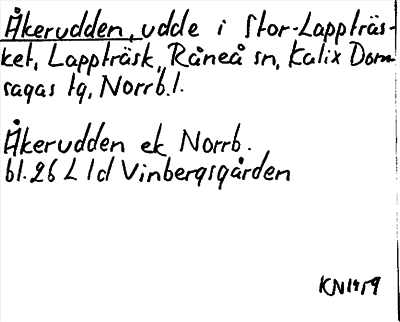 Åkerudden, udde i Stor-Lappträs-
ket, Lappträsk, Råneå sn, Kalix Dom-
sagas tg, Norrb.l.
Åkerudden ek Norrb.
bl. 26 L ld Vinbergsgården